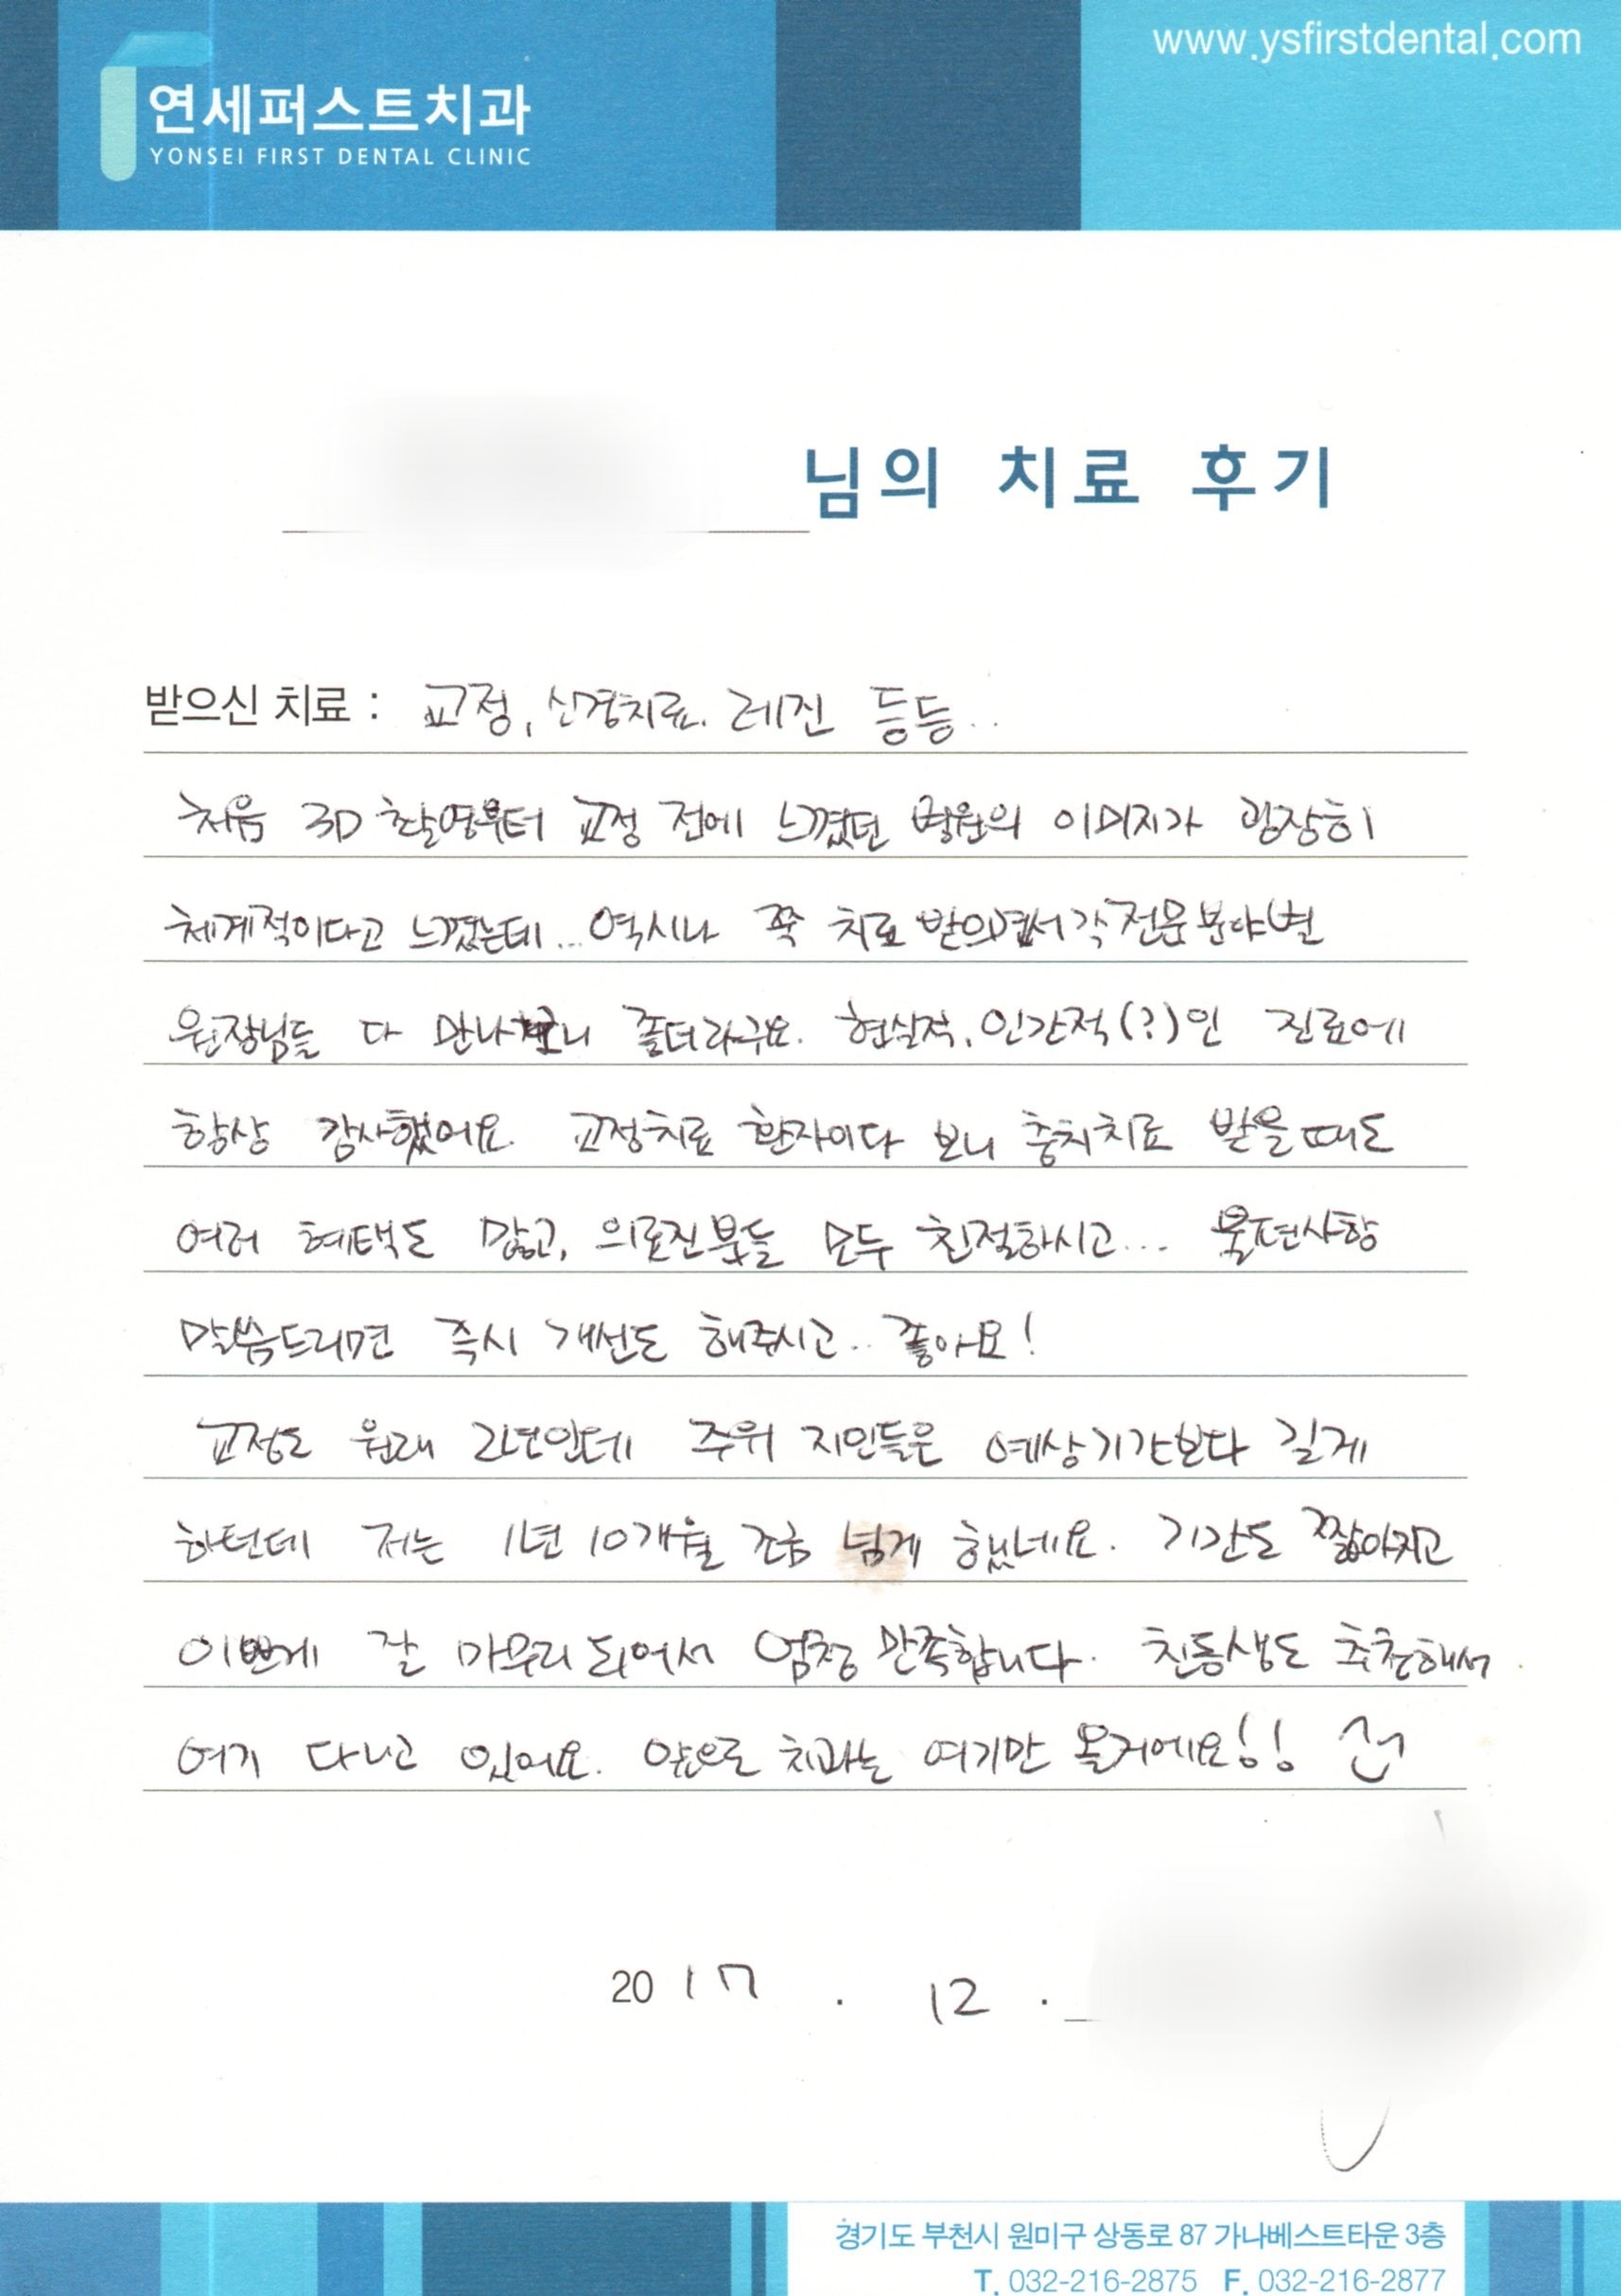 www.ysfirstdental.com
연세퍼스트치과
YONSEI FIRST DENTAL CLINIC
님의 치료 후기
받으신 치료 : 교정, 신경치료. 레진 등등..
처음 3D 촬영부터 교정 전에 느꼈던 병원의 이미지가 굉장히
체계적이다고 느꼈는데... 역시나 쭉 치료 받으면서 각 전문분야별
원장님들 다 만나보니 좋더라구요. 현실적, 인간적(?)인 진료에
항상 감사했어요. 교정치료 환자이다 보니 충치치료 받을때도
여러 혜택도 많고, 의료진분들 모두 친절하시고... 불편사항
말씀드리면 즉시 개선도 해주시고.. 좋아요!
교정도 원래 2년인데 주위 지인들은 예상기간보다 길게
하던데 저는 1년 10개월 조금 넘게 했네요. 기간도 짧아지고
이쁘게 잘 마무리 되어서 엄청 만족합니다. 친동생도 추천해서
여기 다니고 있어요. 앞으로 치과는 여기만 올거에요!!
2017 . 12 .
경기도 부천시 원미구 상동로 87 가나베스트타운 3층
T. 032-216-2875 F. 032-216-2877